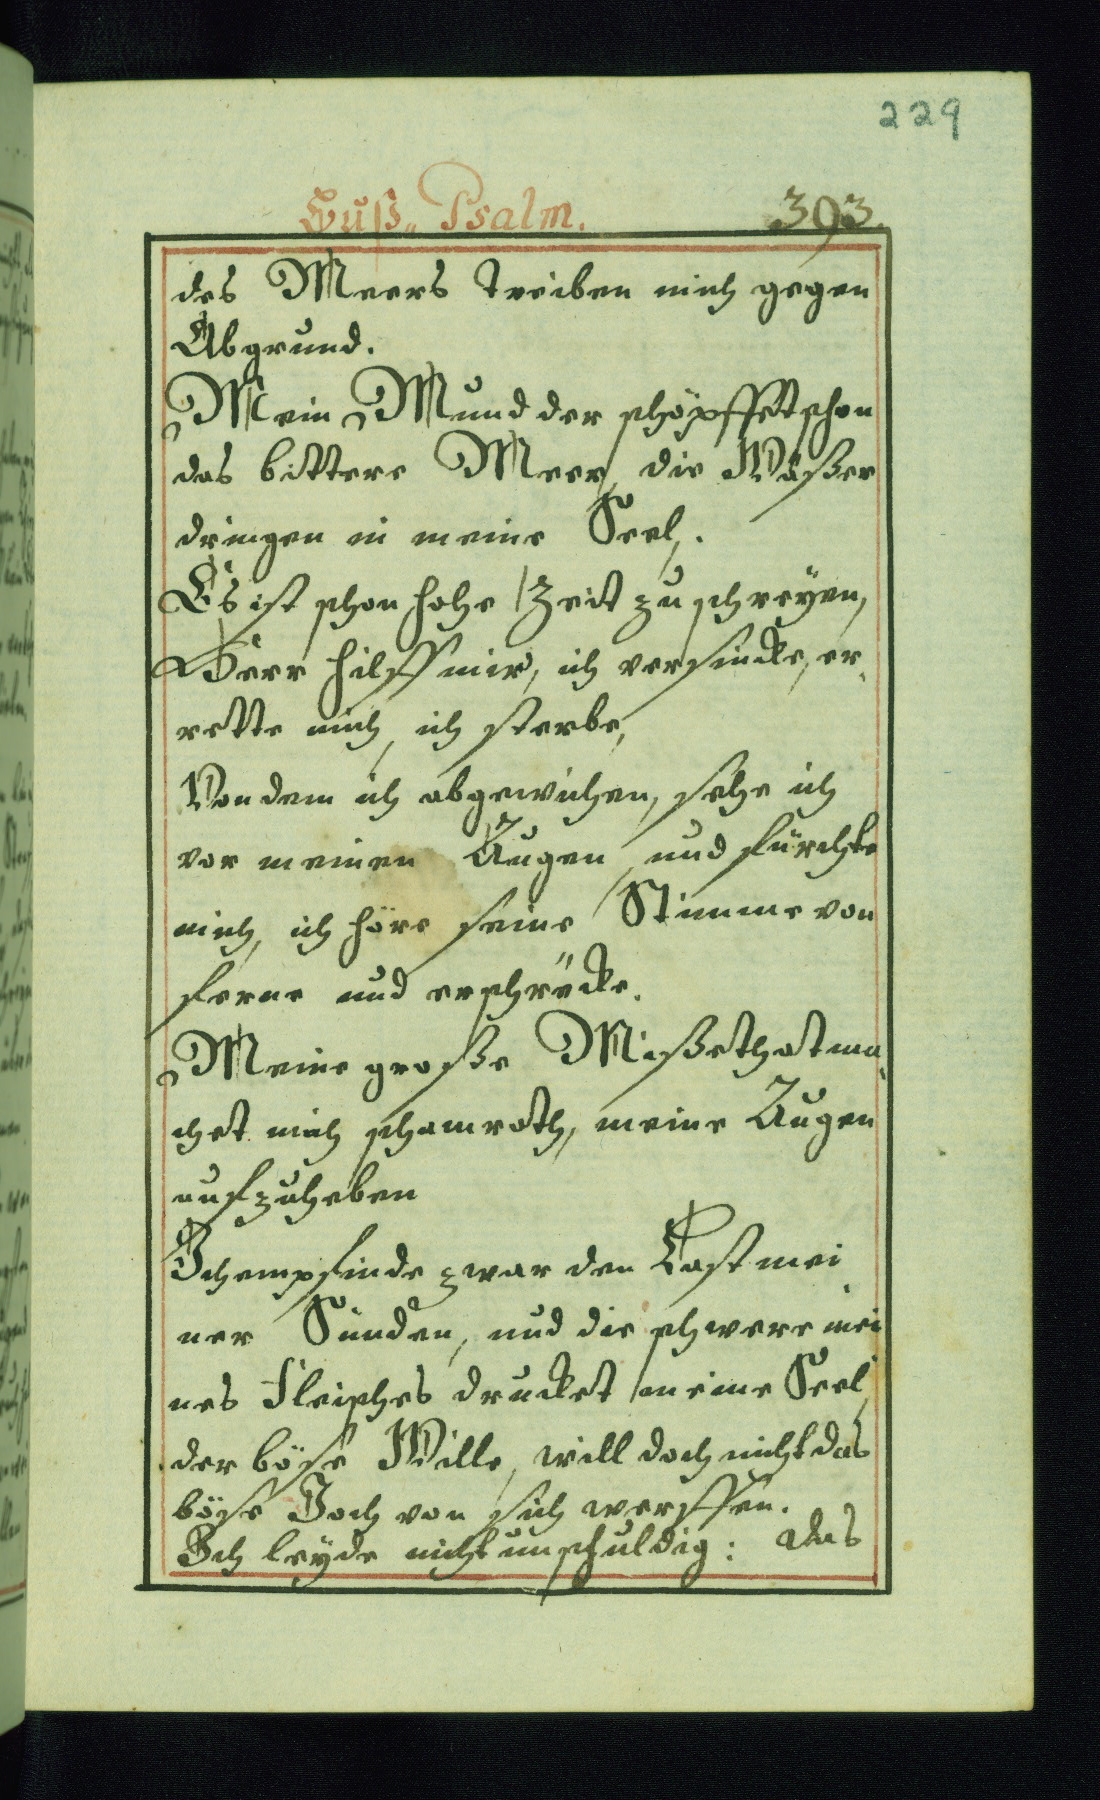 229
Buß„ Psalm. 393.
des Meers treiben mich gegen
Abgrund.
Mein Mund der schöpffet schon
das bittere Meer, die Wäßer
dringen in meine Seel,.
Es ist schon hohe Zeit zu schreÿen,
Herr hilff mir, ich versincke, er„
rette mich, ich sterbe,
Von dem ich abgewichen, sehe ich
vor meinen Augen, und fürchte
mich, ich höre seine Stimme von
ferne und erschröcke.
Meine große Mißethat ma„
chet mich schamroth, meine Augen
aufzuheben
Ich empfinde zwar den Last mei„
ner Sünden, und die schwere mei
nes Fleisches drucket meine Seel,
der böse Wille, will doch nicht das
böse Joch von sich werffen.
Ich leÿde nicht unschuldig: das